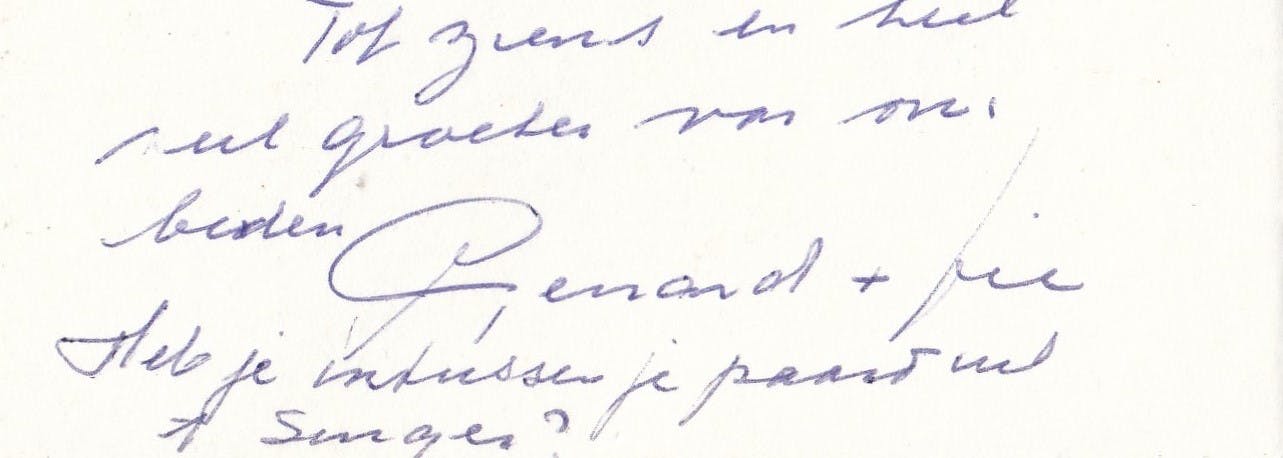 Tot ziens en heel
veel groeten van ons
beiden Gerrard + Fie
Heb je intussen je paard uit
't Singer?